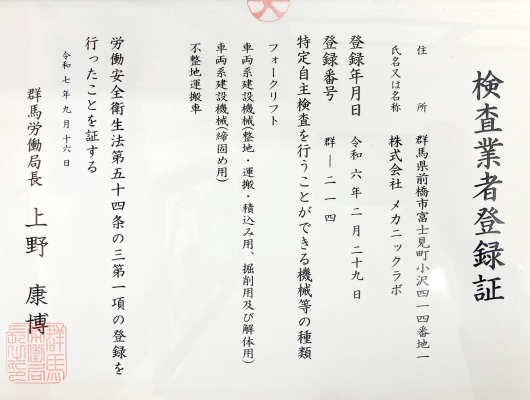 検査業者登録証
住所 群馬県前橋市富士見町小沢四一四番地一
氏名又は名称 株式会社 メカニックラボ
登録年月日 令和六年二月二十九日
登録番号 群―二一四
特定自主検査を行うことができる機械等の種類
フォークリフト
車両系建設機械(整地・運搬・積込み用、掘削用及び解体用)
車両系建設機械(締固め用)
不整地運搬車
労働安全衛生法第五十四条の三第一項の登録を
行ったことを証する
令和七年九月十六日
群馬労働局長 上野 康博
群馬
労働局
長之印